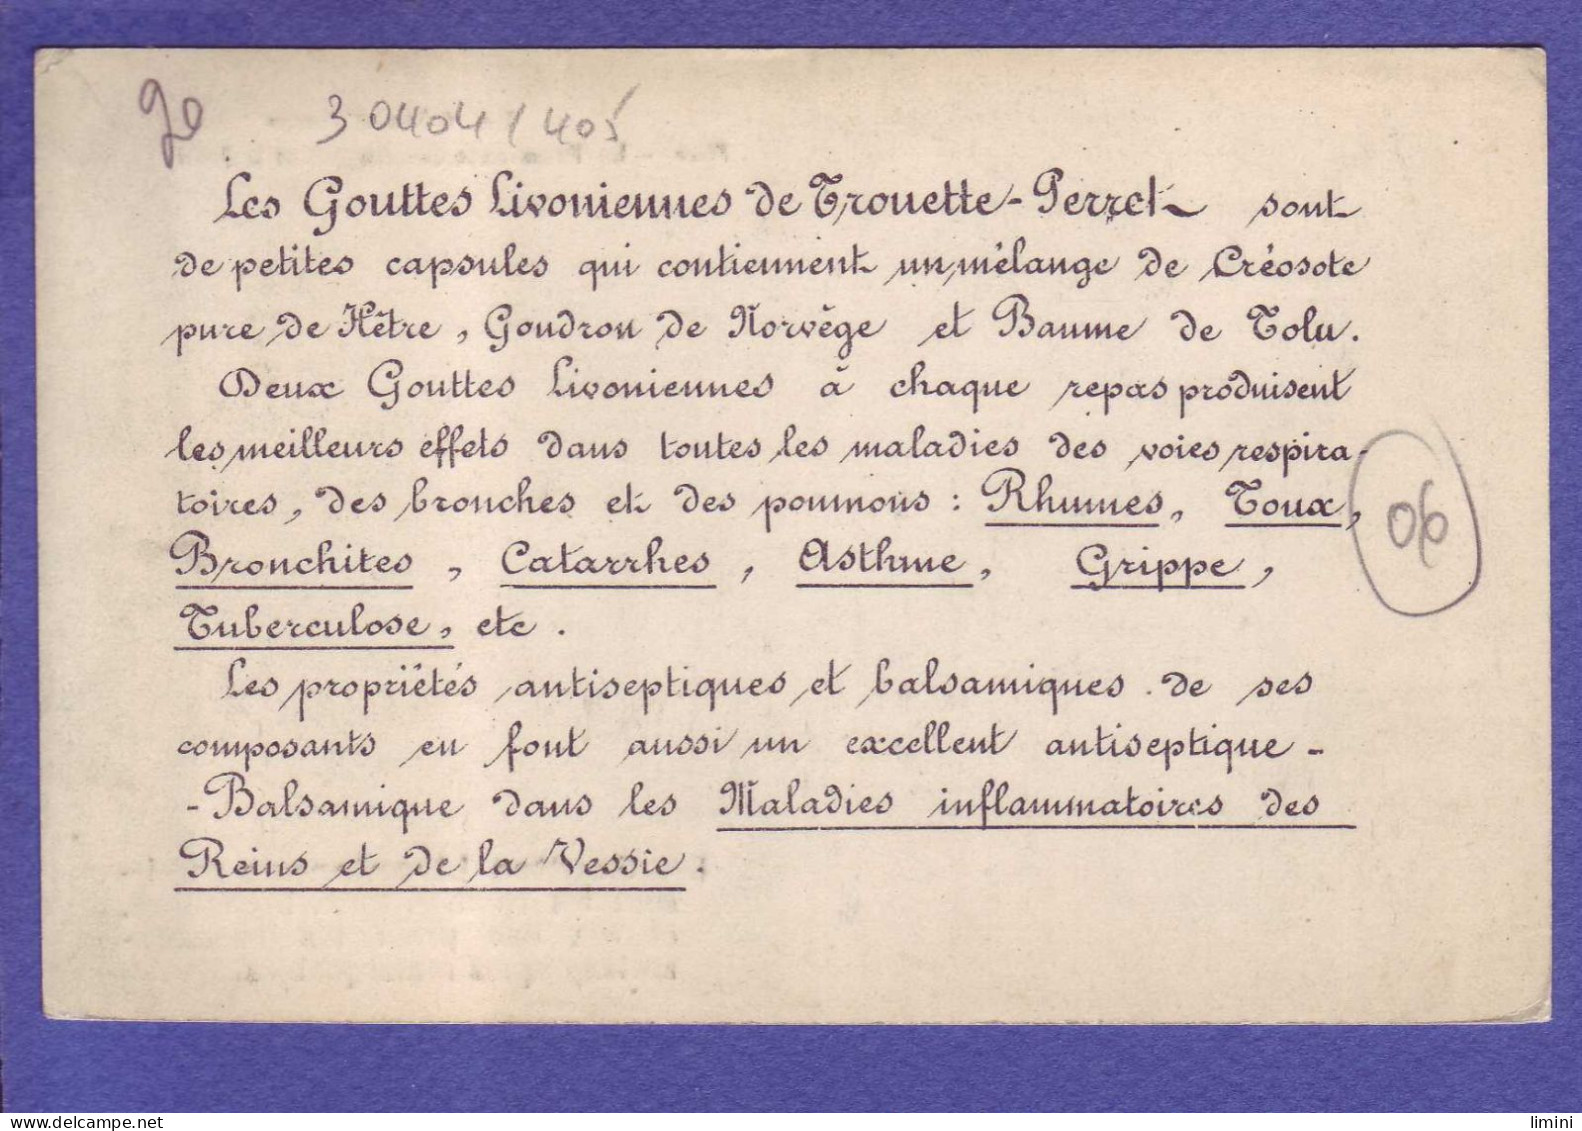 30404/405
Les Gouttes Livoniennes de Trouette-Perret sont
de petites capsules qui contiennent un mélange de Créosote
pure de Hêtre, Goudron de Norvège et Baume de Tolu.
Deux Gouttes Livoniennes à chaque repas produisent
les meilleurs effets dans toutes les maladies des voies respira-
toires, des bronches et des poumons : Rhumes, Toux,
06
Bronchites, Catarrhes, Asthme, Grippe,
Tuberculose, etc.
Les propriétés antiseptiques et balsamiques de ses
composants en font aussi un excellent antiseptique-
-Balsamique dans les Maladies inflammatoires des
Reins et de la Vessie.
www.delcampe.net
limini